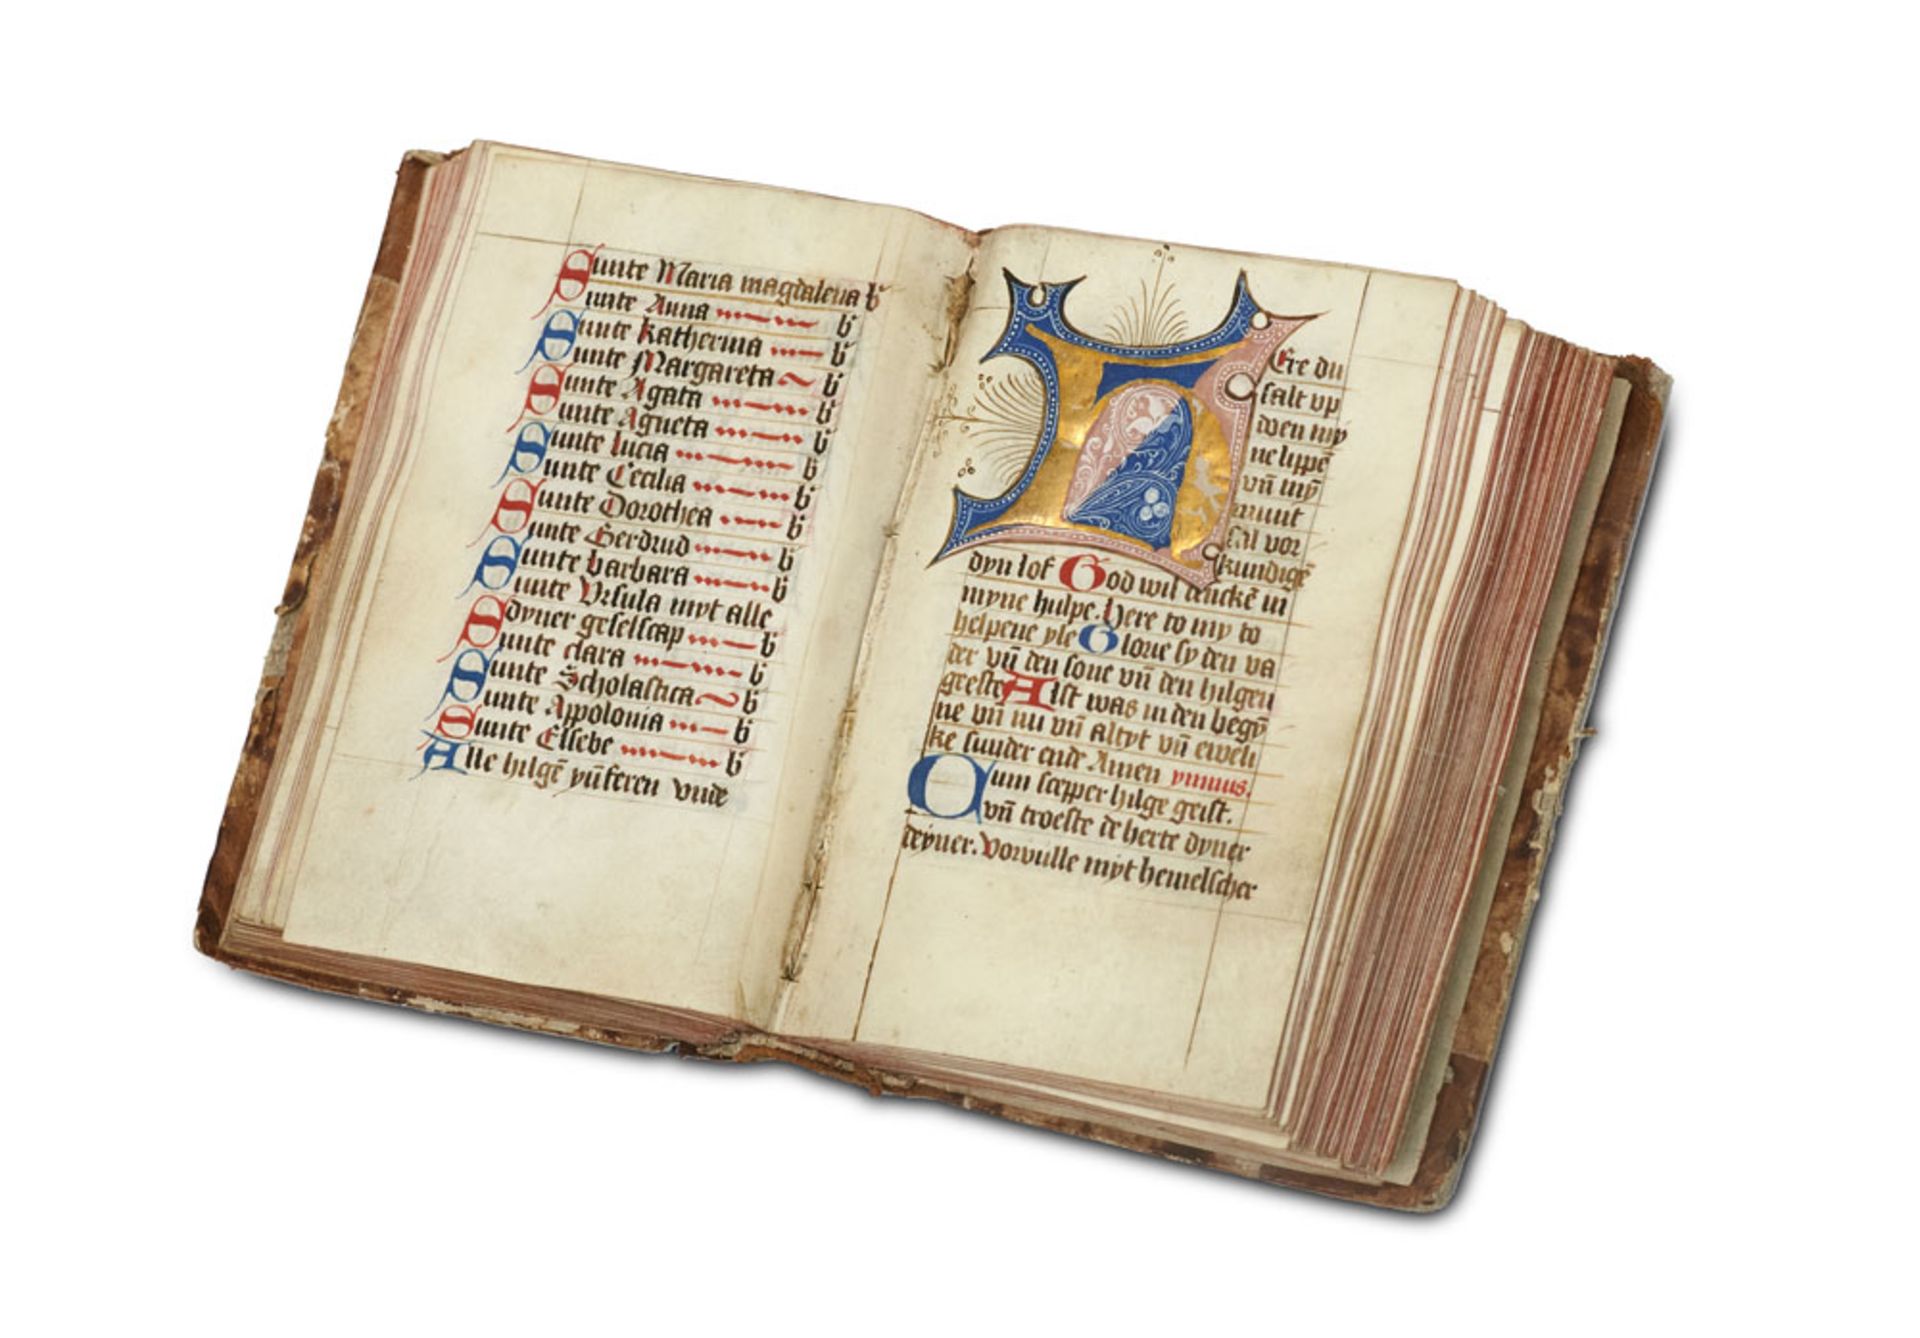 Sunte Maria magdalena b
Sunte Anna b
Sunte katherina b
Sunte Margareta b
Sunte Agata b
Sunte Agneta b
Sunte lucia b
Sunte Cecilia b
Sunte Dorothea b
Sunte Gerdrud b
Sunte barbara b
Sunte Vrsula myt alle
dyner geselscap b
Sunte clara b
Sunte Scholastica b
Sunte Appolonia b
Sunte Elsebe b
Alle hilgē yūferen vnde
Here du
salt vp
doen my
ne lippē
vn̄ mȳ
munt
sal vor
kundigē
dyn lof God wil denckē in
myne hulpe. Here to my to
helpene yle Glorie sy den va
der vn̄ den sone vn̄ den hilgen
geeste Alst was in den begȳ
ne vn̄ nu vn̄ altyt vn̄ eweli
ke sunder ende Amen ymnus.
Cum scepper hilge geist.
vn̄ troeste de herte dyner
deyner. Vorvulle myt hemelscher